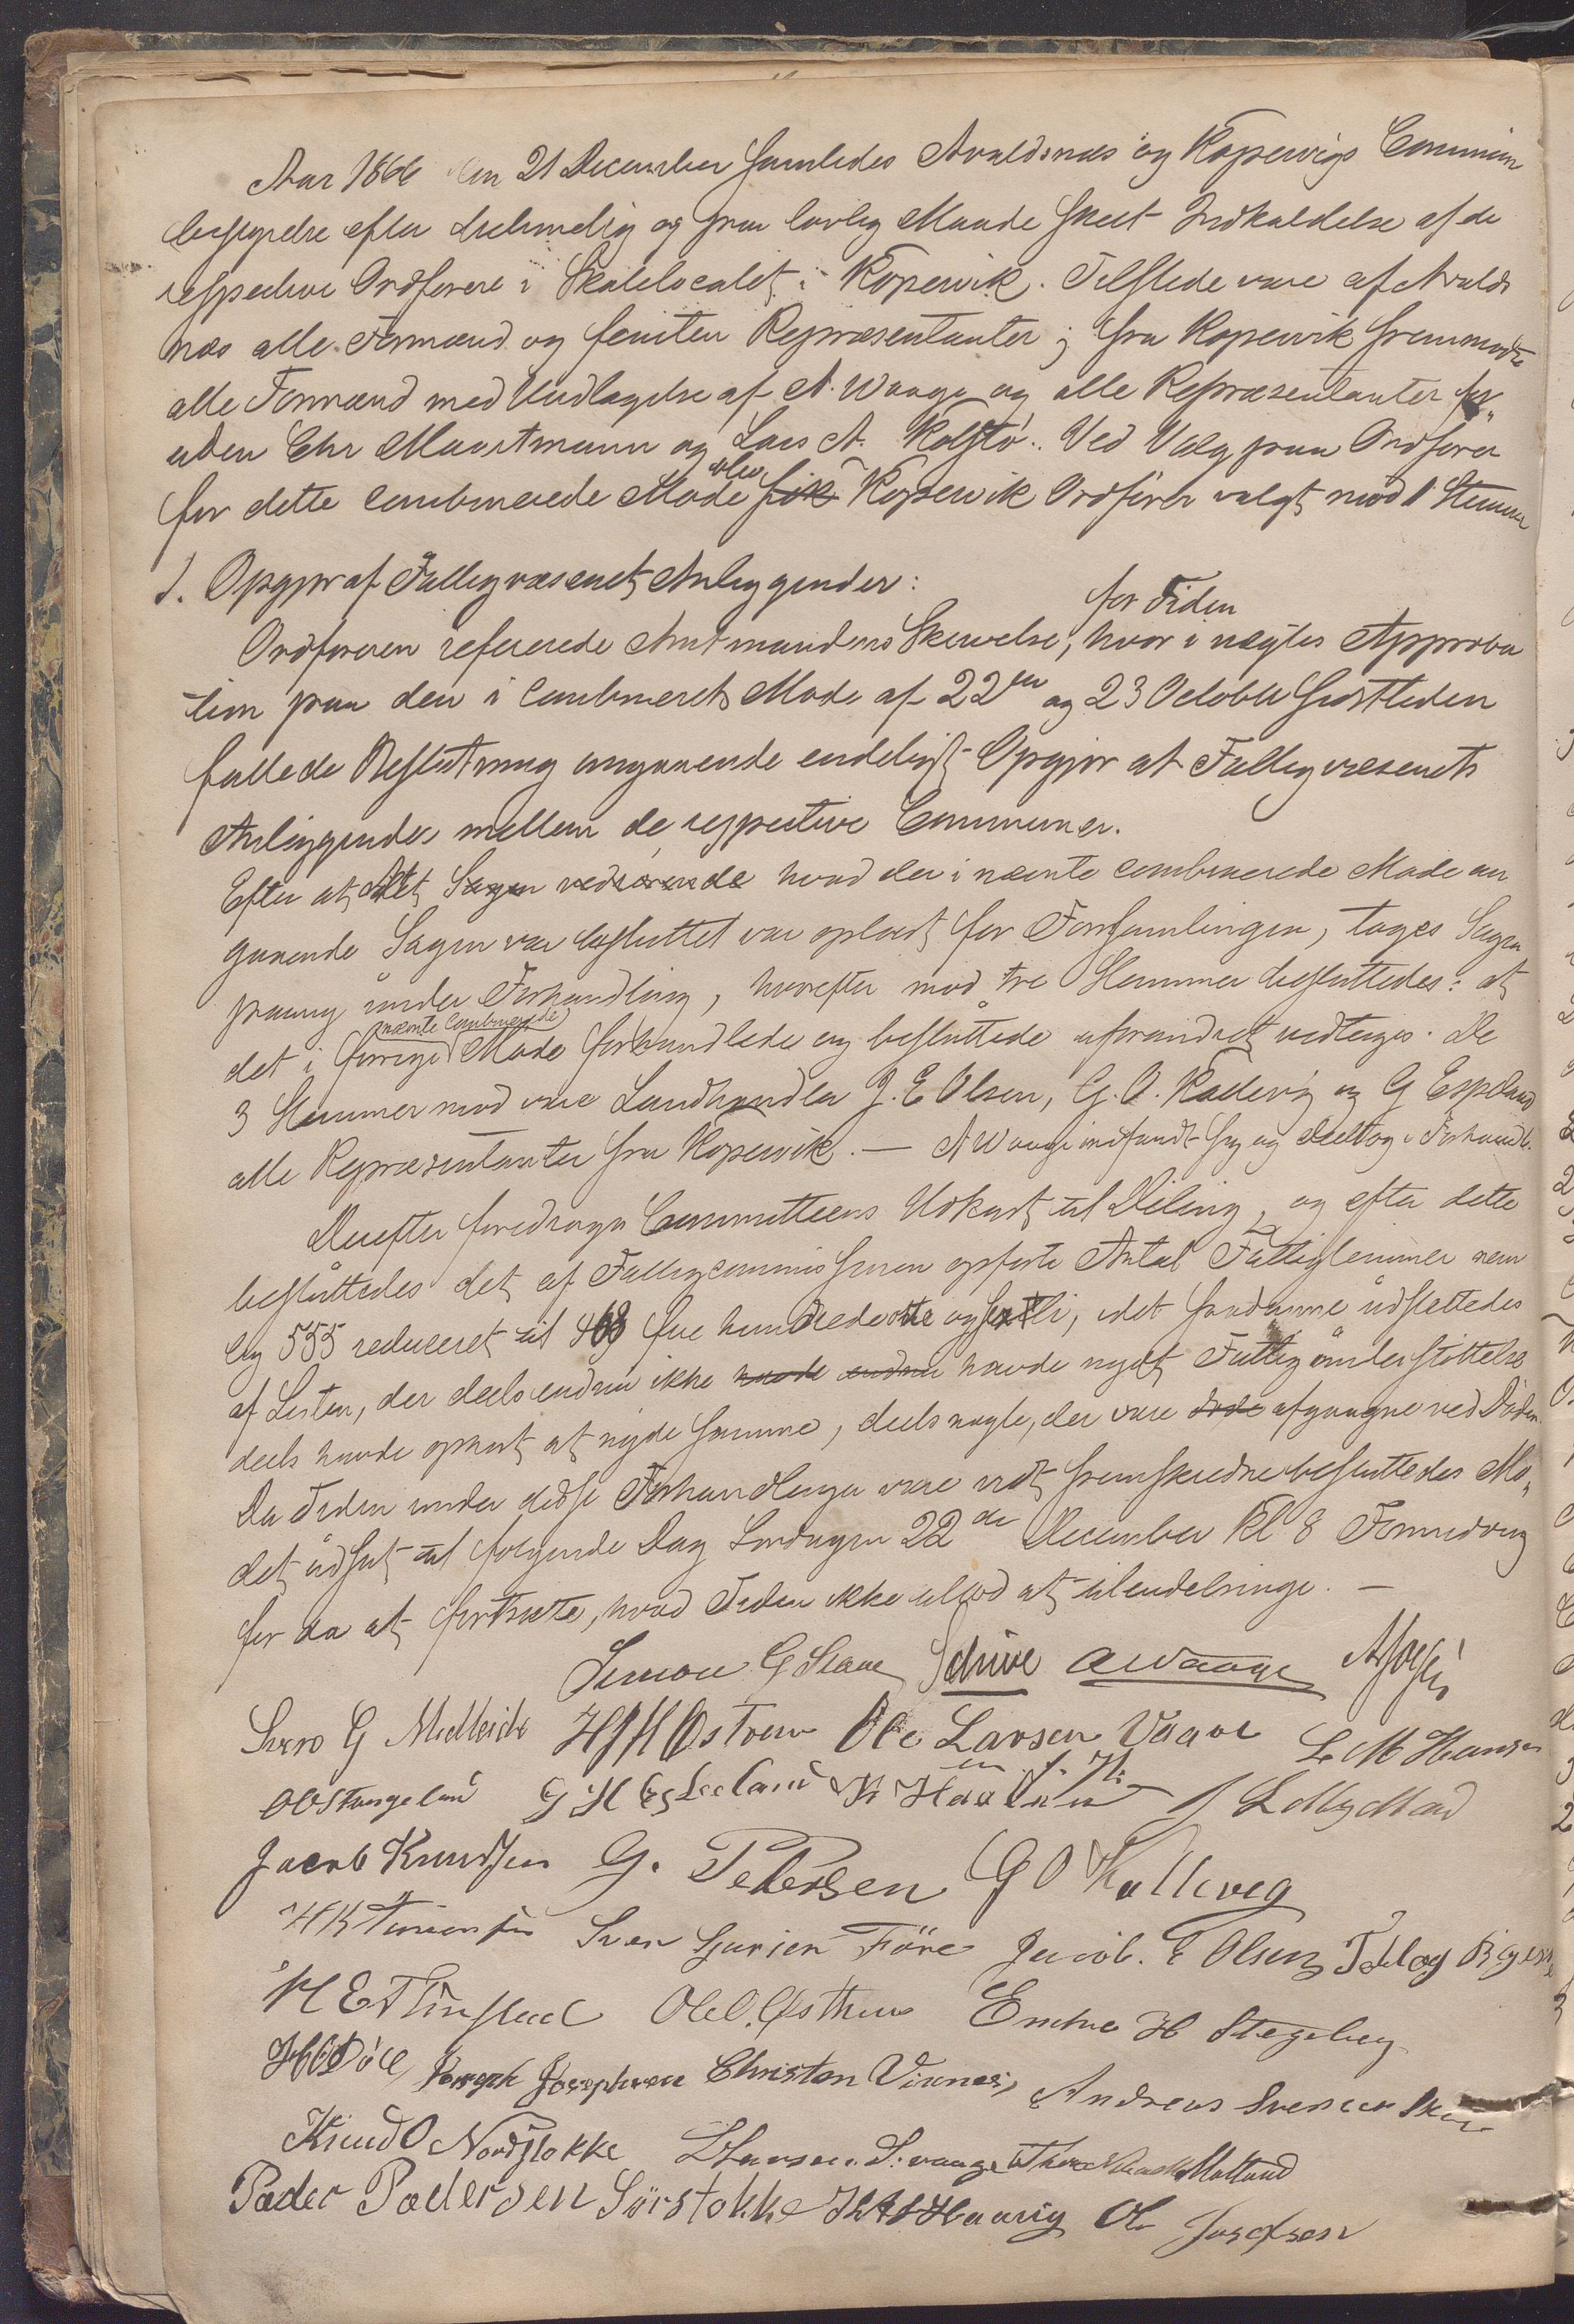 Aar 1866 den 21 December samledes Avaldsnæs og Kopervigs Commun
bestyrelse efter betimelig og paa lovlig Maade skeet Indkaldelse af de
respective Ordførere i Skolelocalet i Kopervik. Tilstede vare af Avalds
næs alle Formænd og femten Repræsentanter; fra Kopervik fremmødte
alle Formænd med Undtagelse af A. Waage og alle Repræsentanter for„
uden Chr Maartmann og Lars A. Kolstø. Ved Valg paa Ordfører
for dette combinerede Møde blev fik Kopervik Ordfører valgt mod 1 Stemme
1. Opgjør af Fattigvæsenets Anliggender:
for Tiden
Ordføreren refererede Amtmandens Skrivelse, hvori nægtes Approba
tion paa den i combineret Møde af 22de og 23 October sidstleden
fattede Beslutning angaaende endeligt Opgjør at Fattigvæsenets
Anliggender mellem de respective Communer.
Efter at Alt Sagen vedrørende hvad der i nævnte combinerede Møde an
gaaende Sagen var besluttet var oplæst for Forsamlingen, toges Sagen
paany under Forhandling, hvorefter mod tre Stemmer besluttedes: at
nævnte combinerede
det i forrige Møde forhandlede og besluttede uforandret vedtoges. De
3 Stemmer mod vare Landhandler J. E Olsen, G. O. Kallevig og G Espeland
alle Repræsentanter fra Kopervik. — A Waage indfandt sig og deeltog i Forhandl.
Derefter foredroges Committeens Udkast til Deling, og efter dette
besluttedes det af Fattigcommissionen opførte Antal Fattiglemmer nem
lig 555 reduceret til 468 fire hundrede otte og sexti, idet saadanne udslettedes
af Listen, der deels endnu ikke havde endnu havde nydt Fattigunderstøttelse
deels havde ophørt at nyde samme, deels nogle, der vare døde afgaagne ved Døden
Da Tiden under disse Forhandlinger var vidt fremskreden besluttedes Mø„
det udsat til følgende Dag Lørdagen 22de December Kl 8 Formiddag
for da at fortsætte, hvad Tiden ikke tillod at tilendebringe. —
Simon G Staae Schive AWaage
Sven G Medhaide H H Østrem Ole Larsen Vaage L M Hansen
OO Stangeland G H Espeland
Jacob Knudsen G. Petersen G O Kalleveg
Sven Larsen Före Jacob. E Olsen
Ole O. Østhus Endre H Stegeberg
Joseph Josephsen Christen Vicnes Andreas Svensen
Knud O Nordstokke
Peder Pedersen Sörstokke Ole Josefsen